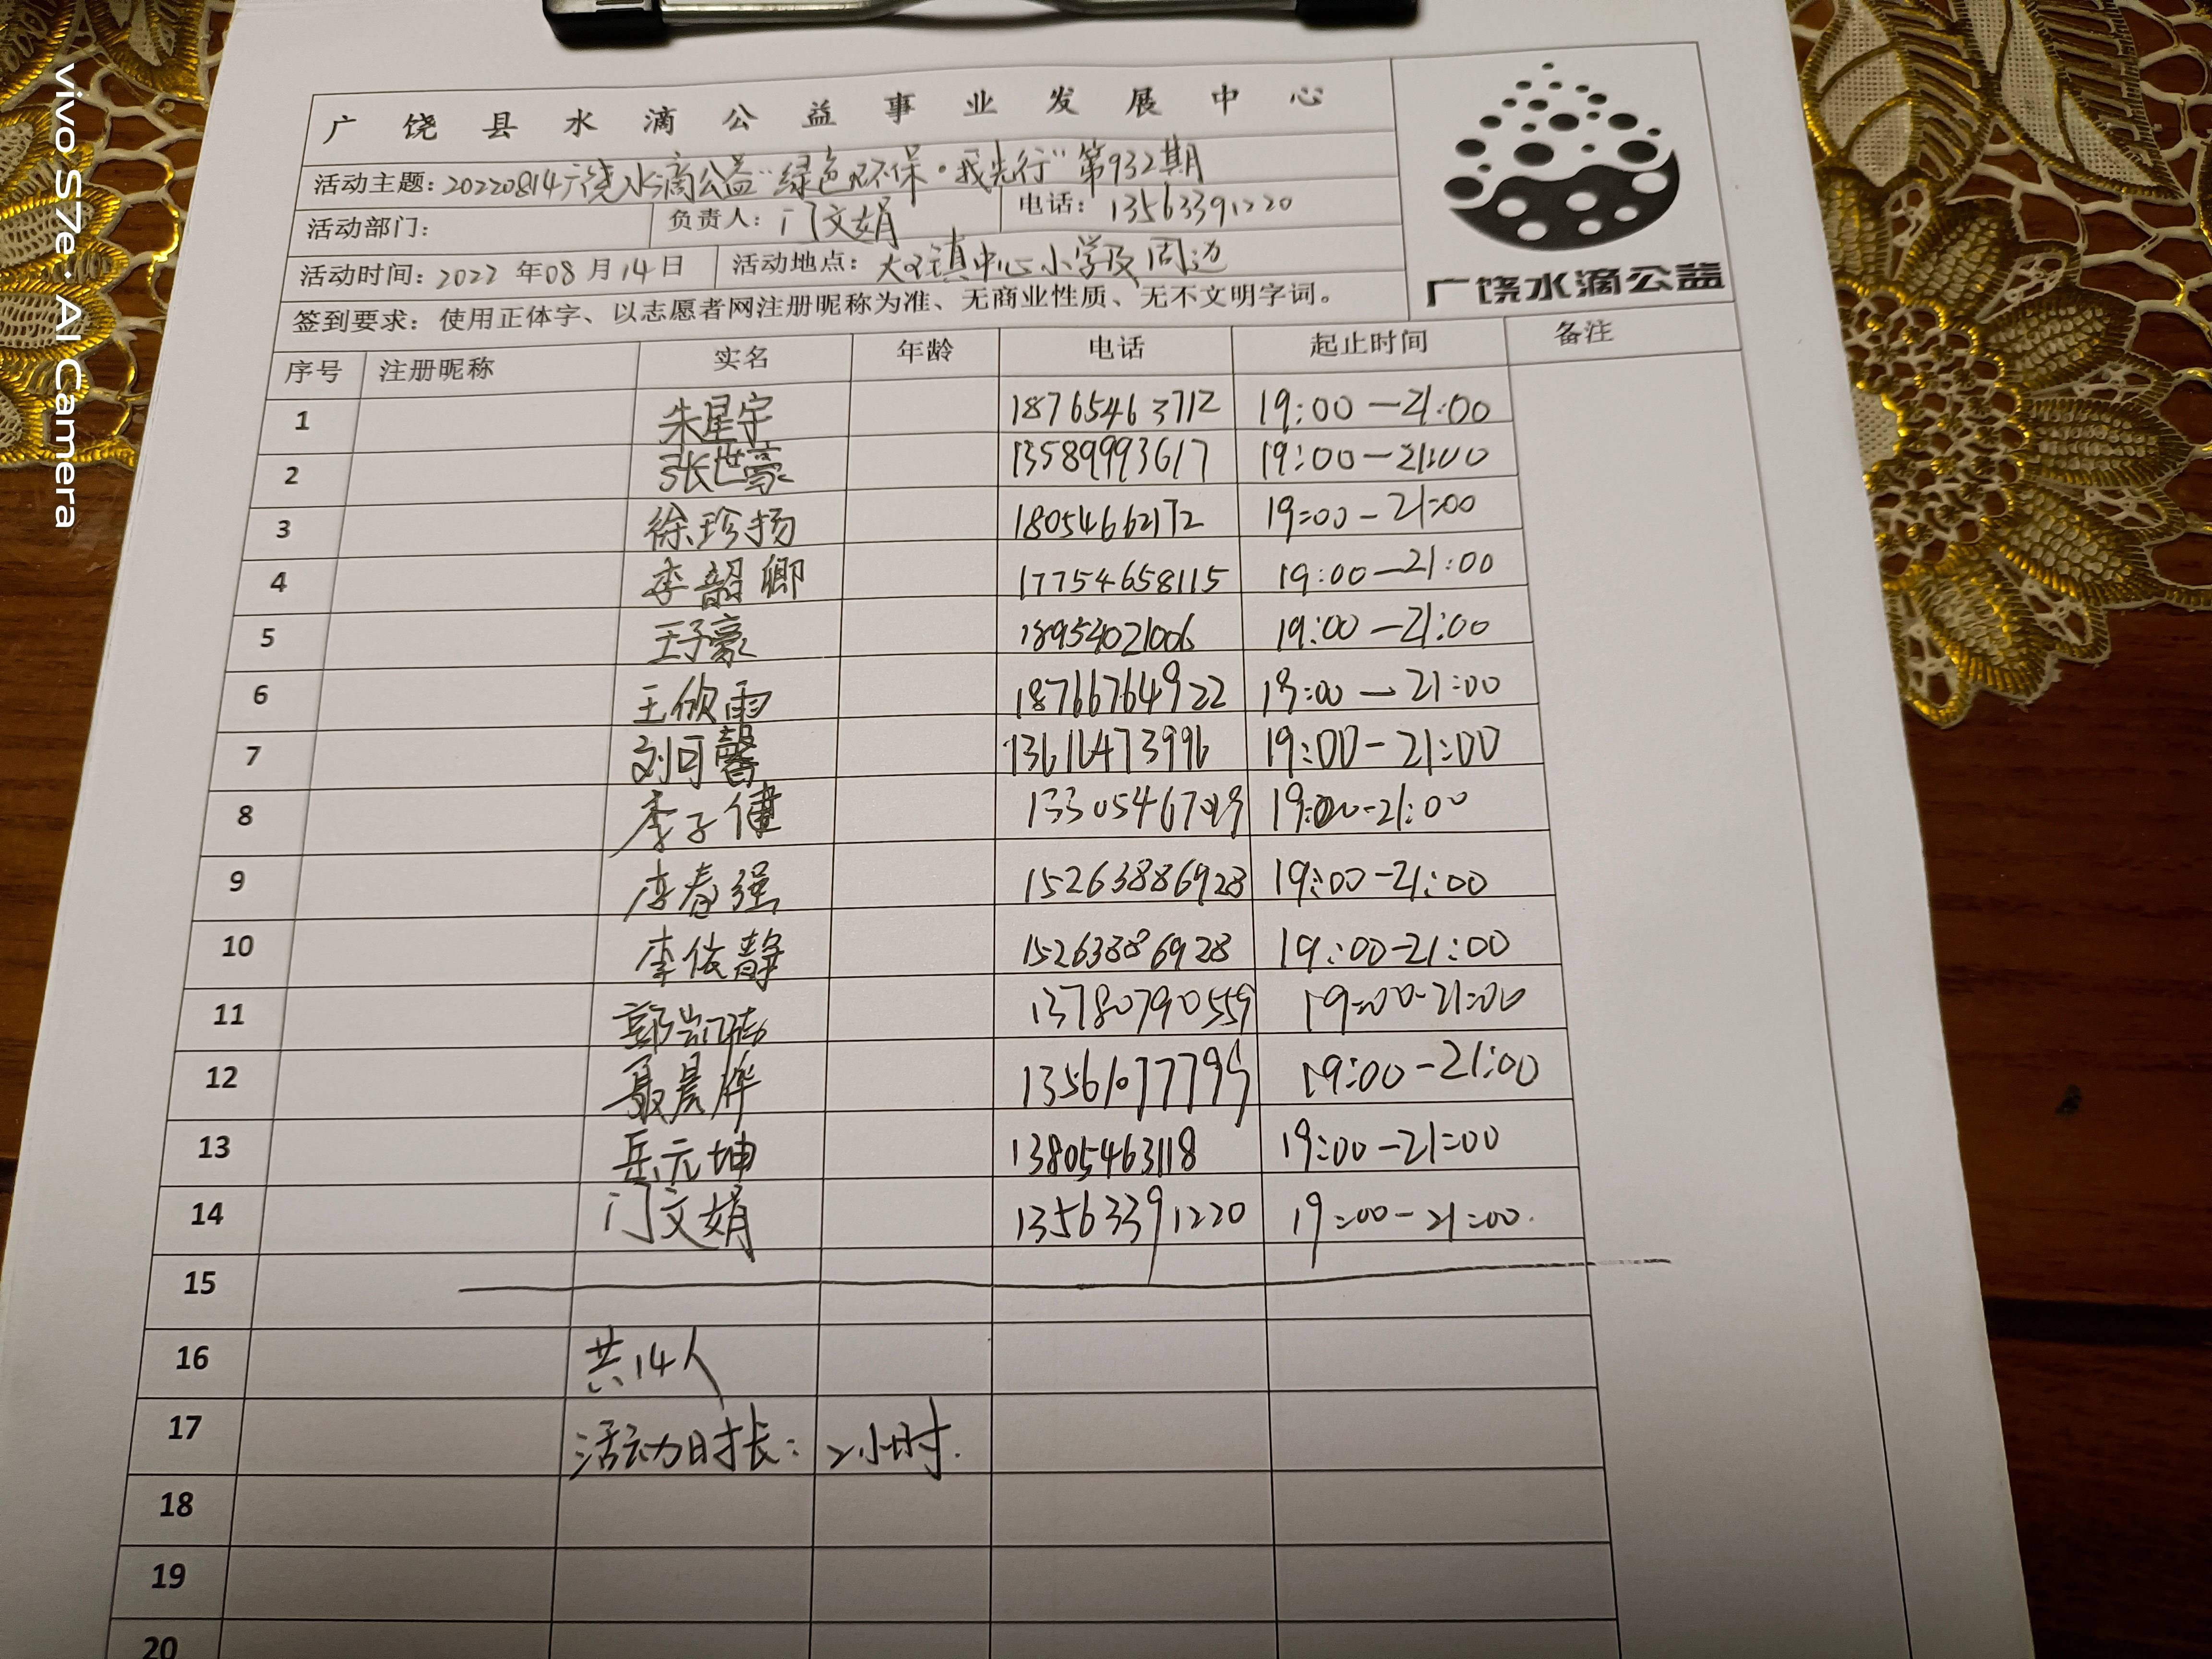 广饶县水滴公益事业发展中心
活动主题：20220814广饶水滴公益“绿色环保·我先行”第932期
活动部门： 负责人：门文娟 电话：13563391220
活动时间：2022年08月14日 活动地点：大王镇中心小学及周边
广饶水滴公益
签到要求：使用正体字、以志愿者网注册昵称为准、无商业性质、无不文明字词。
序号 注册昵称 实名 年龄 电话 起止时间 备注
1 朱星宇 18765463712 19:00—21:00
2 张世豪 13589993617 19:00—21:00
3 徐珍扬 18054662172 19:00-21:00
4 李韶卿 17754658115 19:00—21:00
5 王子豪 18954021006 19:00—21:00
6 王欣雨 18766764922 19:00—21:00
7 刘可馨 13616473996 19:00-21:00
8 李子健 19:00-21:00
9 李春强 15263886928 19:00-21:00
10 李依静 15263886928 19:00-21:00
11 13780790559 19:00-21:00
12 聂晨烨 19:00-21:00
13 岳元坤 13805463118 19:00-21:00
14 门文娟 13563391220 19:00-21:00.
15
16 共14人
17 活动时长：2小时.
18
19
20
vivo S7e·AI Camera